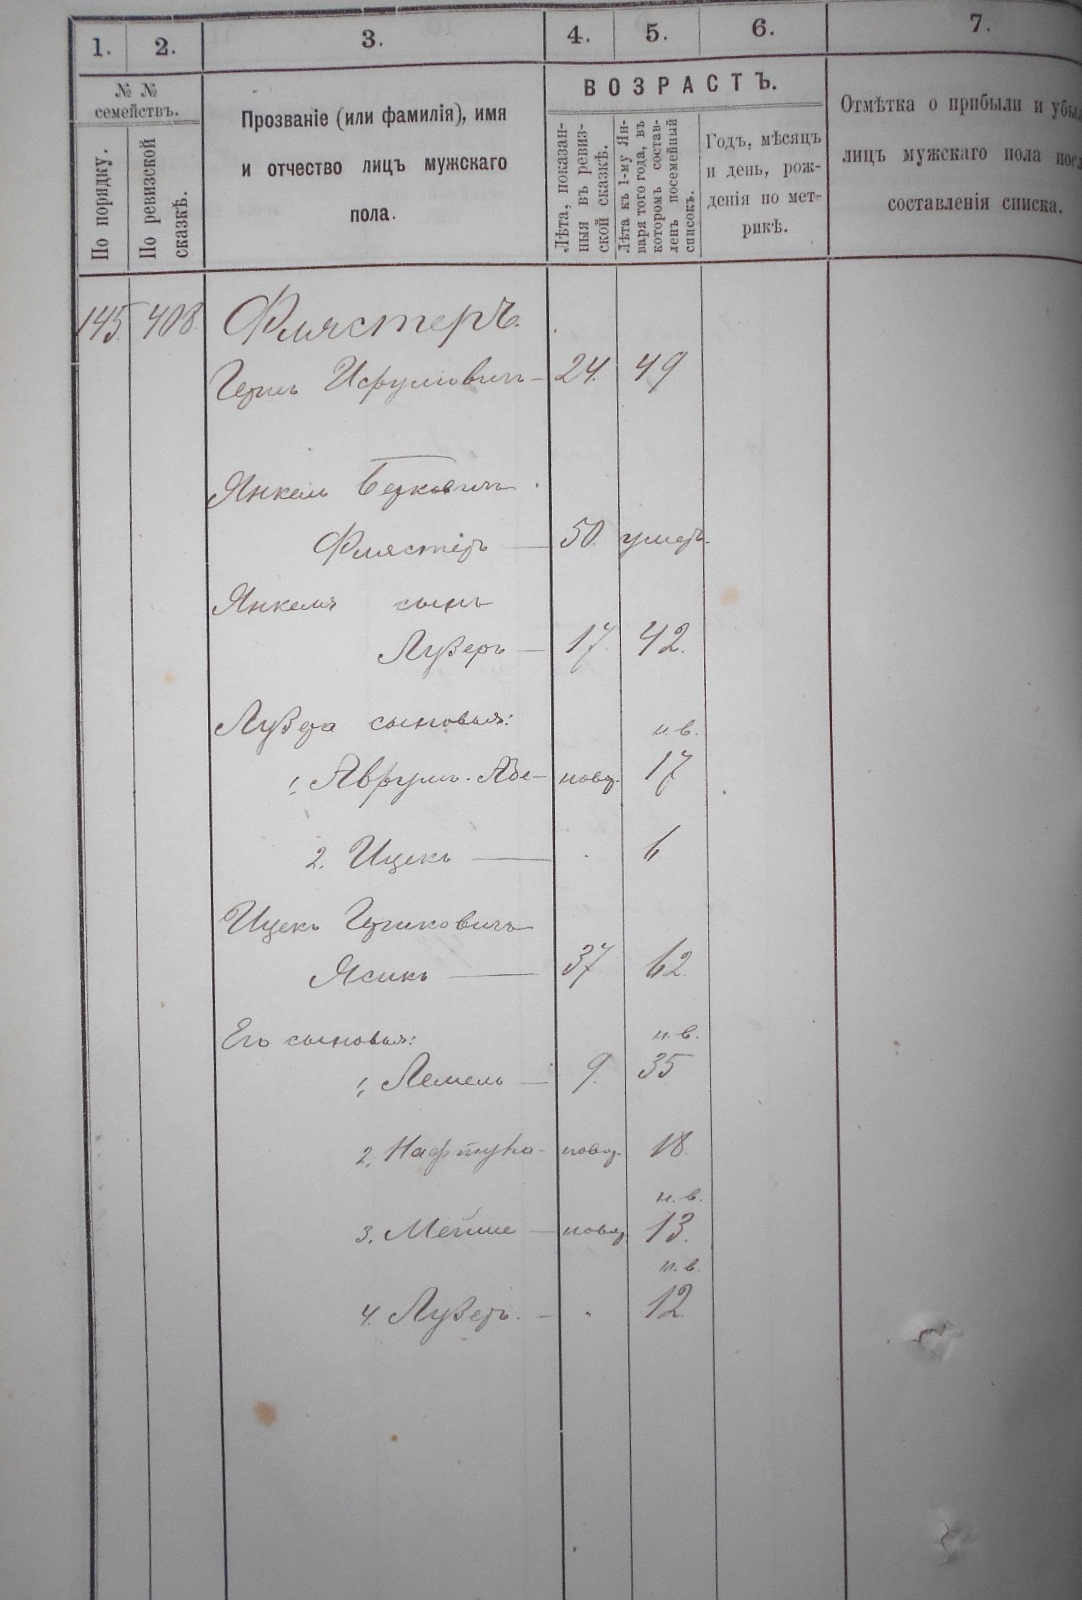 1. 2. 3. 4. 5. 6. 7.
№ №
семействъ.
По порядку.
По ревизской
сказкѣ.
Прозваніе (или фамилія), имя
и отчество лицъ мужскаго
пола.
ВОЗРАСТЪ.
Лѣта, показан-
ныя въ ревиз-
ской сказкѣ.
Лѣта къ 1-му Ян-
варя того года, въ
которомъ состав-
ленъ посемейный
списокъ.
Годъ, мѣсяцъ
и день, рож-
денія по мет-
рикѣ.
Отмѣтка о прибыли и убы
лицъ мужскаго пола пос
составленія списка.
145. 408. Флястеръ.
Исрулювичъ — 24. 49
Янкель Берковичъ.
Флястеръ — 50. умеръ.
Янкеля сынъ
Лузеръ — 17. 42.
Лузера сыновья:
н.в.
1, Аврумъ-Абе — новор. 17
2. Ицекъ — . 6
Ицекъ Гершковичъ
Ясикъ — 37 62
Его сыновья:
н.в.
1, Лемель — 9. 35
2, Нафтула — новор. 18.
н.в.
3, Мейше — новор. 13.
н.в.
4. Лузеръ. — . 12.